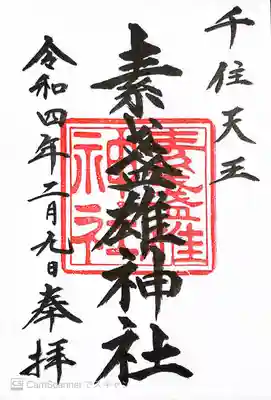 千住天王
素盞雄神社
素盞雄
神社
令和四年二月九日奉拝
CS CamScanner でスキャン